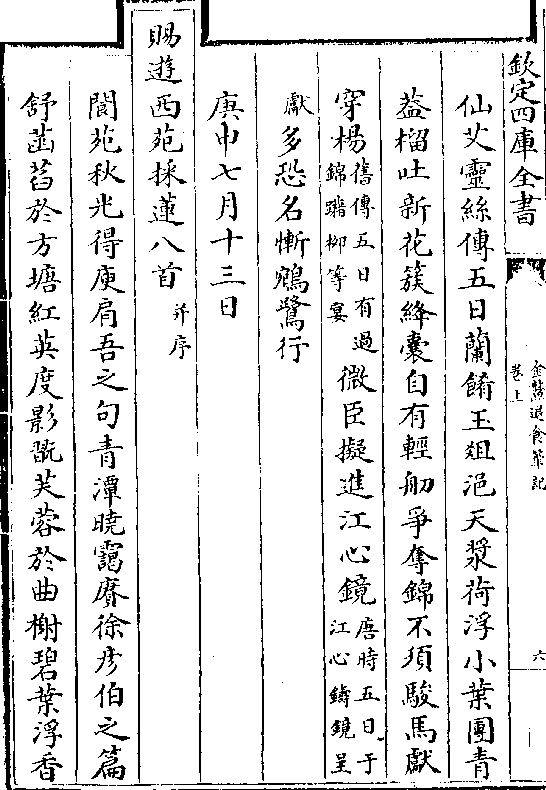 欽定四庫全書
金鰲退食筆記
卷上
六
仙艾靈絲傳五日蘭餚玉俎浥天漿荷浮小葉團青
葢榴吐新花簇絳囊自有輕舠爭奪錦不須駿馬獻
穿楊舊傳五日有過錦躤柳等宴微臣擬進江心鏡唐時五日于江心鑄鏡呈
獻多恐名慚鵷鷺行
庚申七月十三日
賜遊西苑採蓮八首并序
閬苑秋光得庾肩吾之句青潭曉靄賡徐彦伯之篇
舒菡萏於方塘紅英度影翫芙蓉於曲榭碧葉浮香